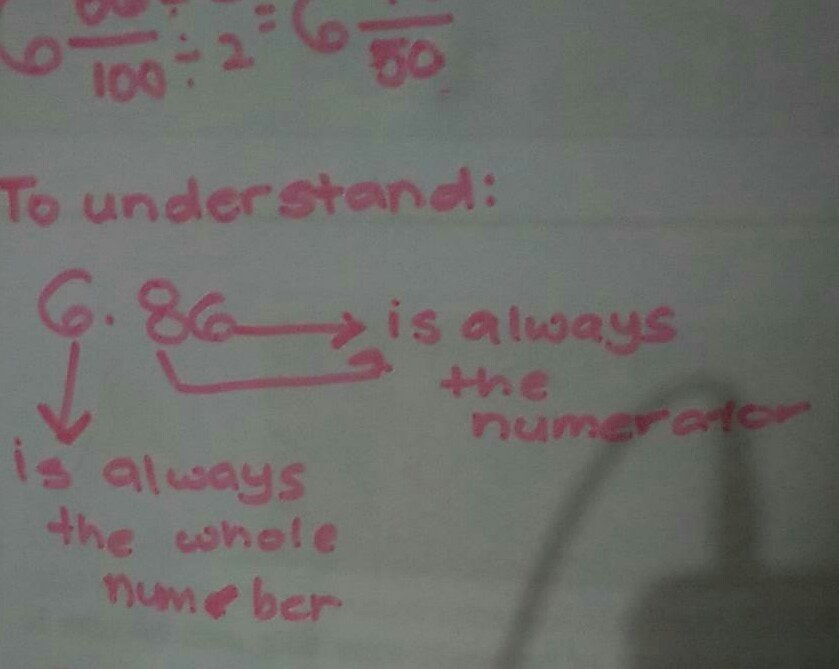 6 — 100 ÷ 2 = 6 — 50
To understand:
6.86 → is always
the
numerator
is always
the whole
number